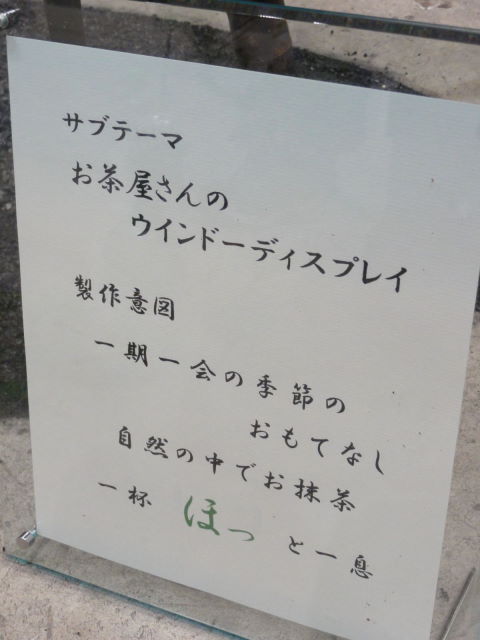 サブテーマ
お茶屋さんの
ウインドーディスプレイ
製作意図
一期一会の季節の
おもてなし
自然の中でお抹茶
一杯 ほっ と一息